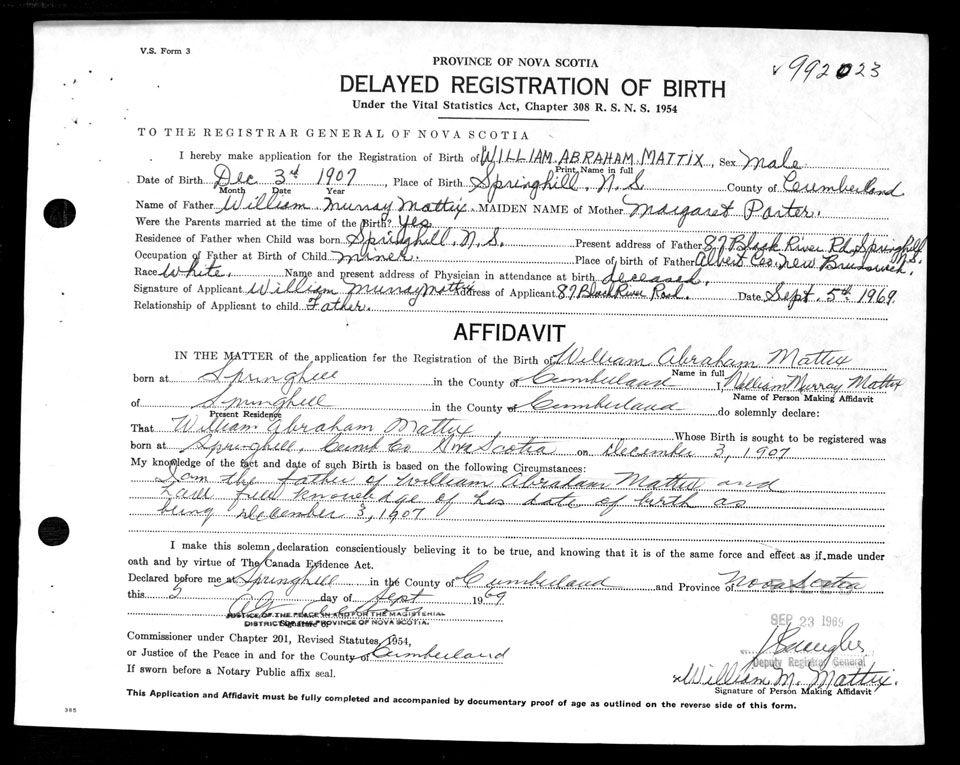 V.S. Form 3
PROVINCE OF NOVA SCOTIA
992023
DELAYED REGISTRATION OF BIRTH
Under the Vital Statistics Act, Chapter 308 R. S. N. S. 1954
TO THE REGISTRAR GENERAL OF NOVA SCOTIA
I hereby make application for the Registration of Birth of WILLIAM ABRAHAM MATTIX, Sex Male
Print Name in full
Date of Birth Dec 3rd 1907, Place of Birth Springhill, N.S. County of Cumberland
Month Date Year
Name of Father William Murray Mattix MAIDEN NAME of Mother Margaret Porter.
Were the Parents married at the time of the Birth? Yes
Residence of Father when Child was born Springhill, N.S. Present address of Father 87 Black River Rd, Springhill N.S.
Occupation of Father at Birth of Child Miner. Place of birth of Father Albert Coo, New Brunswick.
Race White. Name and present address of Physician in attendance at birth deceased.
Signature of Applicant William Murray Mattix Address of Applicant 87 Black River Road. Date Sept. 5th 1969
Relationship of Applicant to child Father.
AFFIDAVIT
IN THE MATTER of the application for the Registration of the Birth of William Abraham Mattix
Name in full
born at Springhill in the County of Cumberland I, William Murray Mattix
Name of Person Making Affidavit
of Springhill in the County of Cumberland do solemnly declare:
Present Residence
That William Abraham Mattix, Whose Birth is sought to be registered was
born at Springhill, Cumb Co Nova Scotia on December 3, 1907
My knowledge of the fact and date of such Birth is based on the following Circumstances:
I am the father of William Abraham Mattix and
have full knowledge of his date of birth as
being December 3, 1907
I make this solemn declaration conscientiously believing it to be true, and knowing that it is of the same force and effect as if made under
oath and by virtue of The Canada Evidence Act.
Declared before me at Springhill in the County of Cumberland and Province Nova Scotia
this 5 day of Sept 1969
JUSTICE OF THE PEACE IN AND FOR THE MAGISTERIAL
DISTRICT OF THE PROVINCE OF NOVA SCOTIA.
Signature of
SEP 23 1969
Commissioner under Chapter 201, Revised Statutes, 1954,
or Justice of the Peace in and for the County of Cumberland
Deputy Registrar General
If sworn before a Notary Public affix seal.
William M. Mattix.
Signature of Person Making Affidavit
This Application and Affidavit must be fully completed and accompanied by documentary proof of age as outlined on the reverse side of this form.